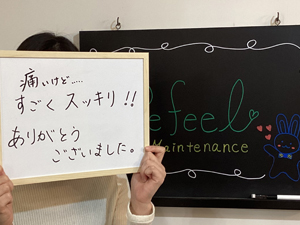 痛いけど.....
すごくスッキリ!!
ありがとう
ございました。
efeel
Maintenance